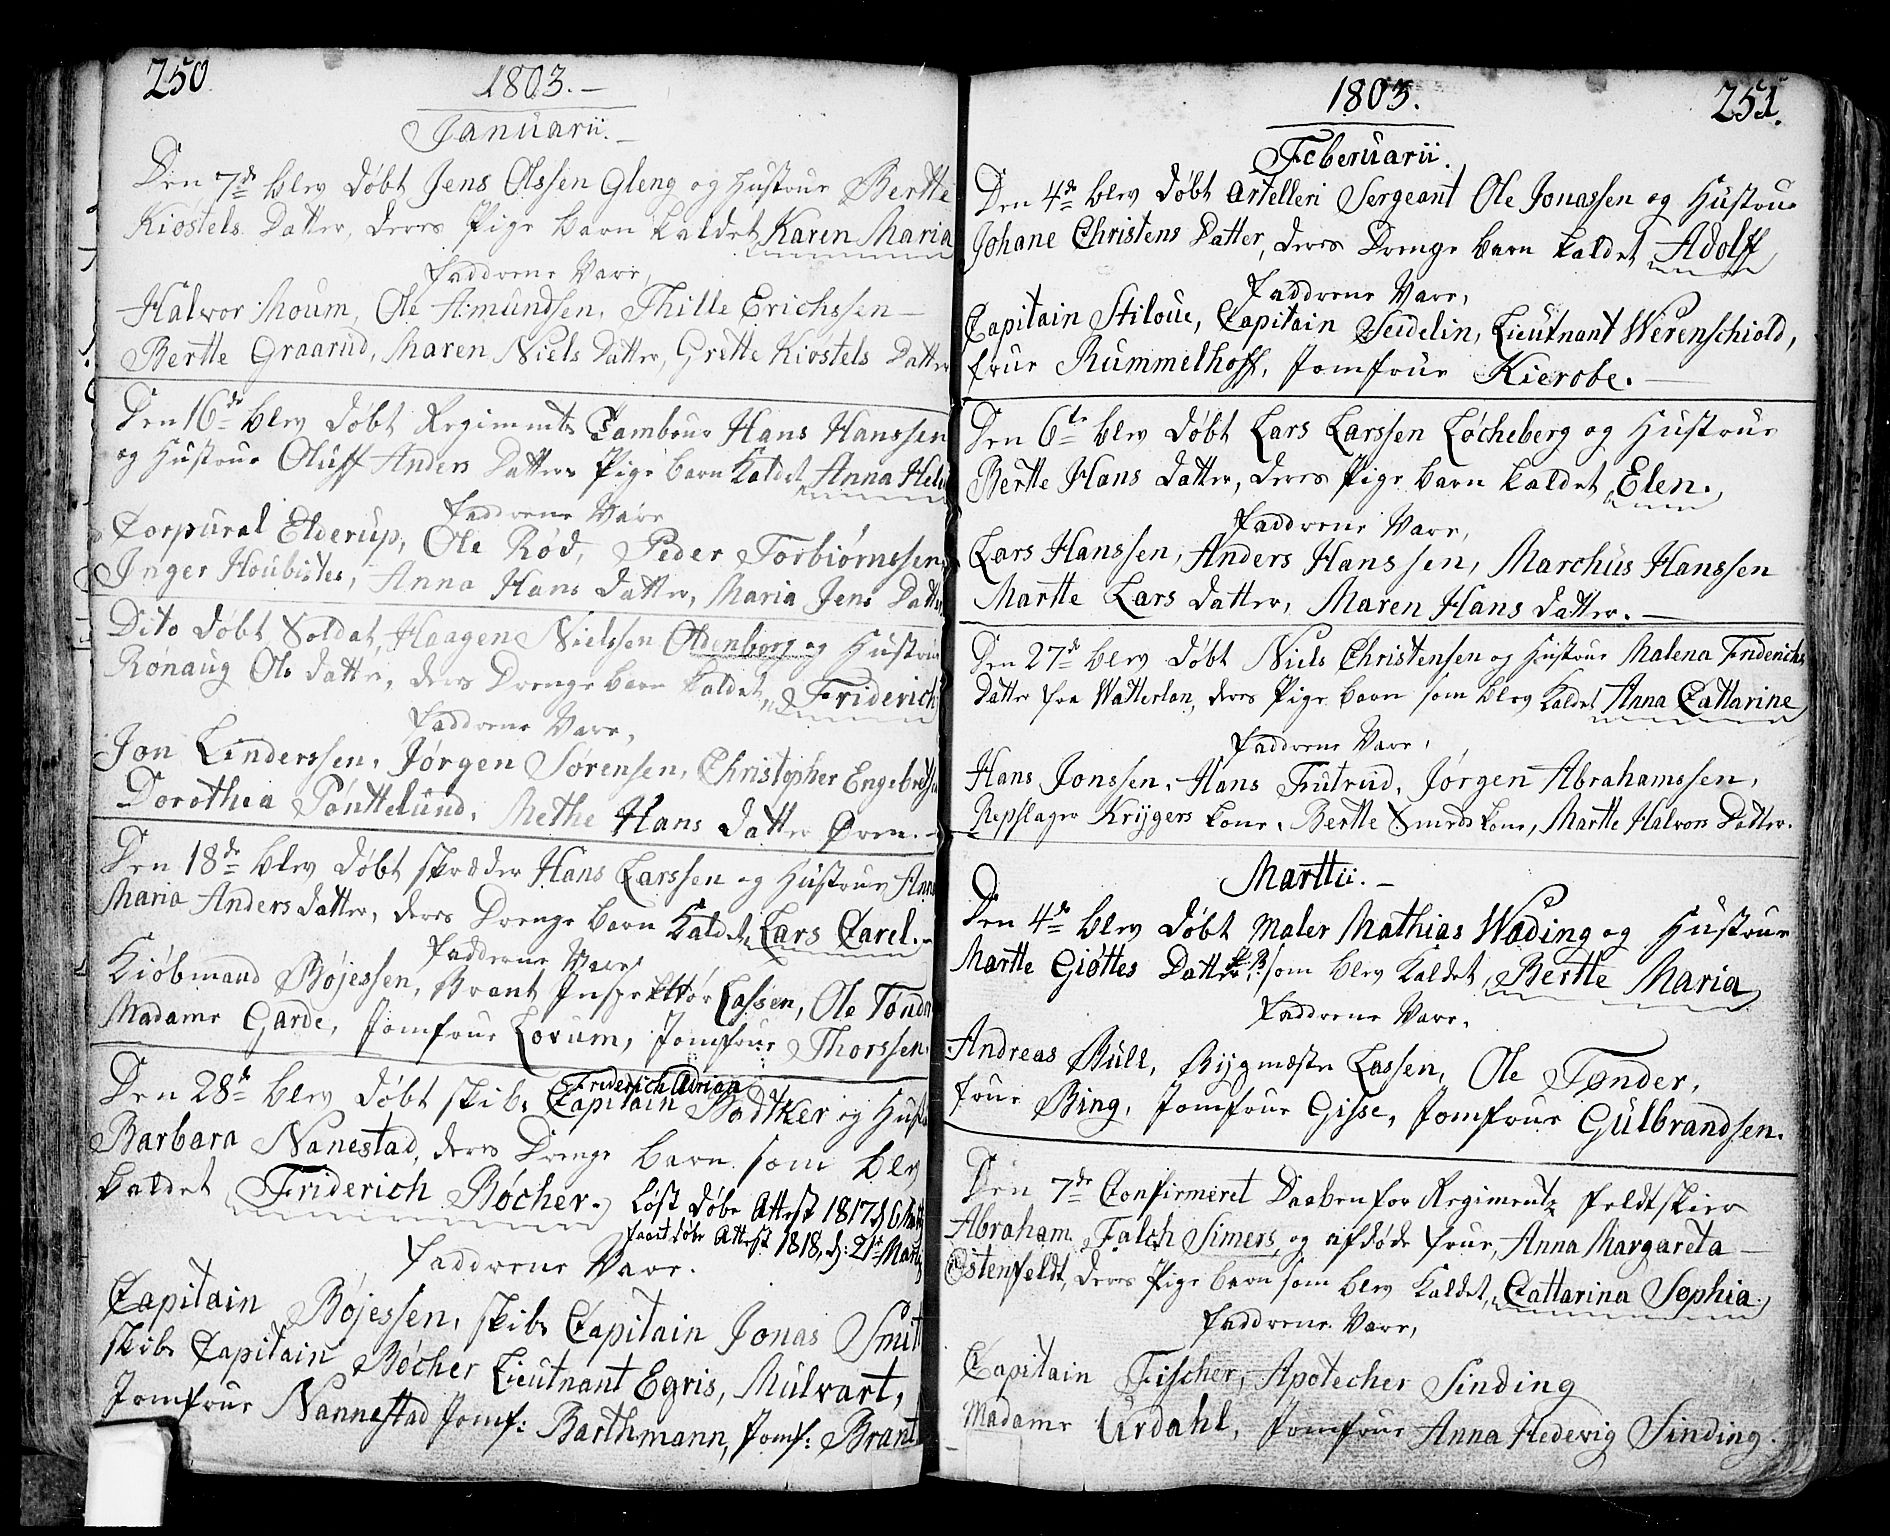 250
1803.
Januarii.
Den 7de blev døbt Jens Olssen Gleng og Hustrue Bertte
Kiostels Datter, deres Pige barn kaldet Karen Maria
Faddrene Vare,
Halvor Moum, Ole Amundsen, Thille Erichssen
Bertte Graarud, Maren Niels Datter, Grette Kiostels Datter
Den 16de blev døbt Regiments Tambour Hans Hanssen
og Hustrue Oluff Anders Datters Pige barn Kaldet Anna Hele
Faddrene Vare
Corpural Elderup, Ole Rød, Peder Torbiørnssen,
Inger Houbistes, Anna Hans Datter, Maria Jens Datter
Dito døbt Soldat, Haagen Nielssen Oldenborg og Hustrue
Rønaug Ols datter, deres Drenge barn kaldet, Friderich
Faddrene Vare,
Jon Linderssen, Jørgen Sørensen, Christopher Engebretsen
Dorothea Pønttelund, Methe Hans Datter Øren.
Den 18de blev døbt skrædder Hans Larssen og Hustrue Anna
Maria Anders datter, deres Drenge barn Kaldet Lars Carel.
Faddrene Vare
Kiøbmand Bøjessen, Brant Inspecttør Lassen, Ole Tønder
Madame Garde, Jomfrue Lovum, Jomfrue Thorssen.
Friderich Adrian
Den 28de blev døbt skibs Capitain Bødtker og Hustrue
Barbara Nanestad, deres Drenge barn som blev
kaldet Friderich Bøcher. løst døbe Attest 1817 d 6 Mart
faaet døbe Attest 1818, d: 21de Martz
Faddrene Vare.
Capitain Bøjessen, skibs Capitain Jonas Smit
skibs Capitain Bøcher Lieutnant Egris, Mulvart,
Jomfrue Nannestad Jomf: Barthmann, Jomf: Brant
1803.
251.
Feberuarii.
Den 4de blev døbt Artelleri Sergeant Ole Jonassen og Hustrue
Johane Christens Datter, deres Drenge barn kaldet Adolff
Faddrene Vare,
Capitain Stiloue, Capitain Seidelin, Lieutnant Werenschiold,
frue Rummelhoff, Jomfrue Kierobe.
Den 6te blev døbt Lars Larssen Løcheberg og Hustrue
Bertte Hans datter, deres Pige barn kaldet Elen.
Faddrene Vare,
Lars Hanssen, Anders Hanssen, Marchus Hanssen
Martte Lars datter, Maren Hans datter.
Den 27de blev døbt Niels Christensen og Hustrue Malena Friderichs
Datter fra Watterlan, deres Pige barn som blev Kaldet Anna Cattarine
Faddrene Vare,
Hans Jonssen, Hans Frutrud, Jørgen Abrahamssen,
Repslager Krygers kone, Bertte Smeds kone, Martte Halvors Datter.
Marttii.
Den 4de blev døbt Maler Mathias Wading og Hustrue
Martte Giøttes Datter P:B: som blev kaldet, Bertte Maria
Faddrene Vare,
Andreas Bull, Bygmester Lassen, Ole Tønder,
frue Bing, Jomfrue Gisse, Jomfrue Gulbrandsen.
Den 7de Confirmeret Daaben for Regiments feldtskier
Abraham Falch Simers, og afdøde frue, Anna Margareta
Ostenfeldt, deres Pige barn som blev Kaldet, Cattarina Sophia.
Faddrene Vare,
Capitain Fischer, Apotecher Sinding
Madame Urdahl, Jomfrue Anna Hedevig Sinding.